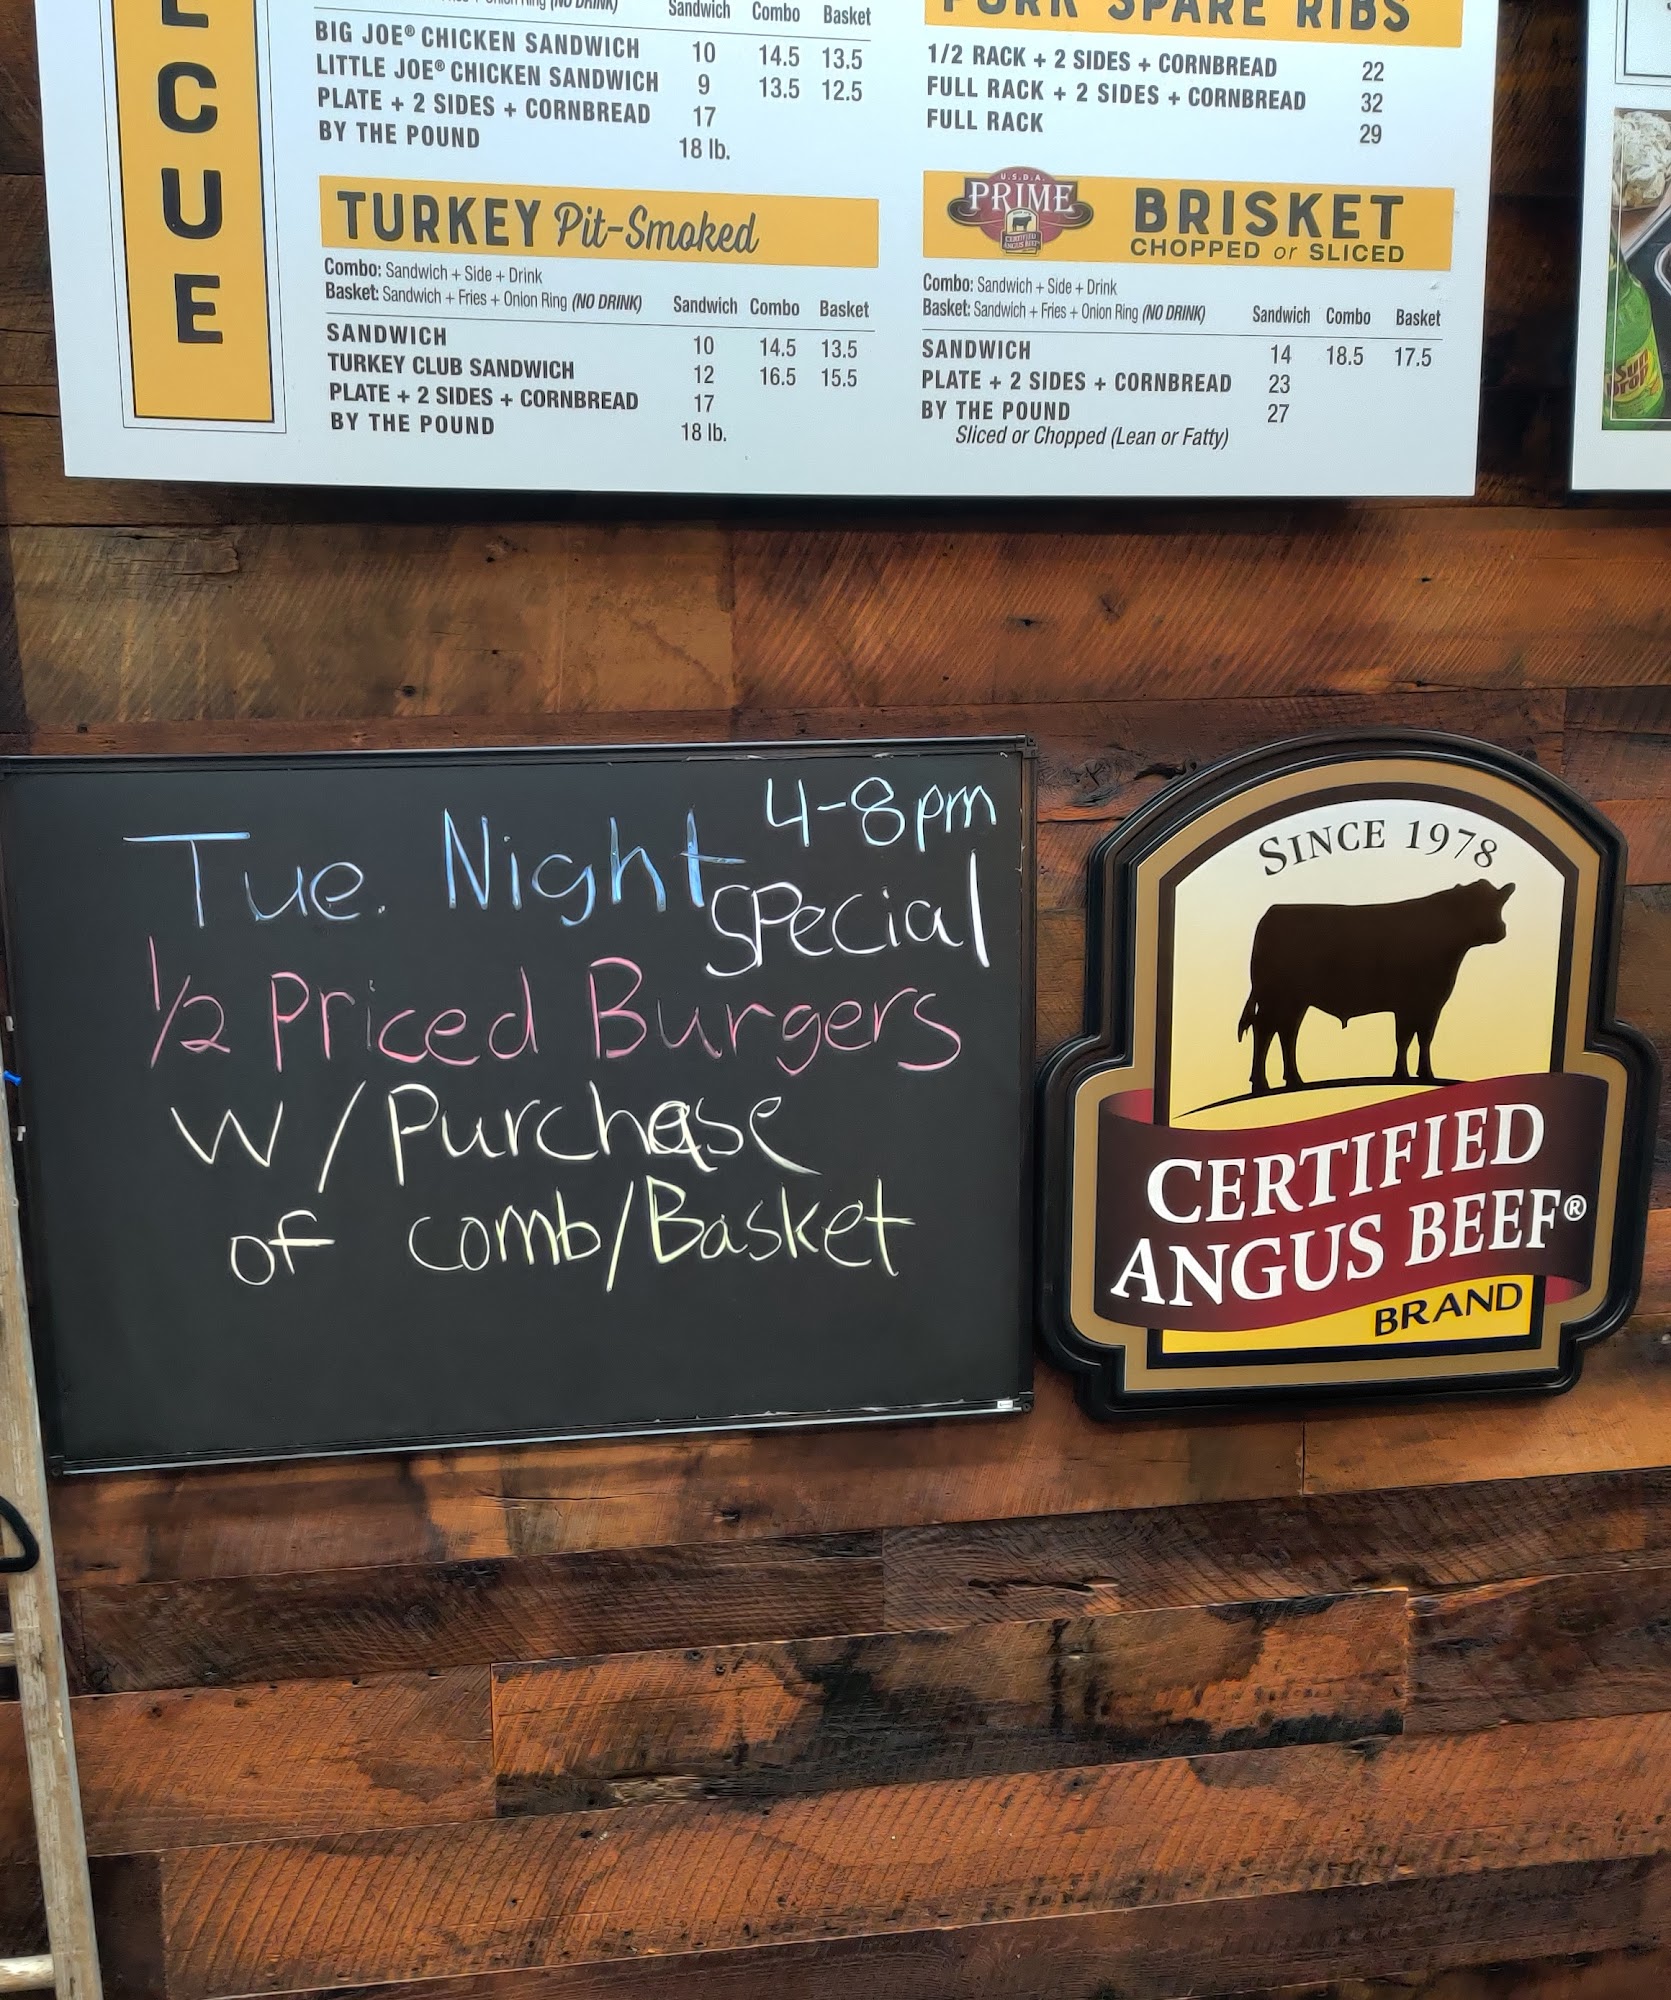 E
C
U
E
Sandwich Combo Basket
BIG JOE® CHICKEN SANDWICH 10 14.5 13.5
LITTLE JOE® CHICKEN SANDWICH 9 13.5 12.5
PLATE + 2 SIDES + CORNBREAD 17
BY THE POUND 18 lb.
TURKEY Pit-Smoked
Combo: Sandwich + Side + Drink
Basket: Sandwich + Fries + Onion Ring (NO DRINK) Sandwich Combo Basket
SANDWICH 10 14.5 13.5
TURKEY CLUB SANDWICH 12 16.5 15.5
PLATE + 2 SIDES + CORNBREAD 17
BY THE POUND 18 lb.
PORK SPARE RIBS
1/2 RACK + 2 SIDES + CORNBREAD 22
FULL RACK + 2 SIDES + CORNBREAD 32
FULL RACK 29
U.S.D.A.
PRIME
CERTIFIED
ANGUS BEEF
BRISKET
CHOPPED or SLICED
Combo: Sandwich + Side + Drink
Basket: Sandwich + Fries + Onion Ring (NO DRINK) Sandwich Combo Basket
SANDWICH 14 18.5 17.5
PLATE + 2 SIDES + CORNBREAD 23
BY THE POUND 27
Sliced or Chopped (Lean or Fatty)
Sun
Drop
4-8pm
Tue. Night
special
1/2 Priced Burgers
w/Purchase
of comb/Basket
SINCE 1978
CERTIFIED
ANGUS BEEF®
BRAND